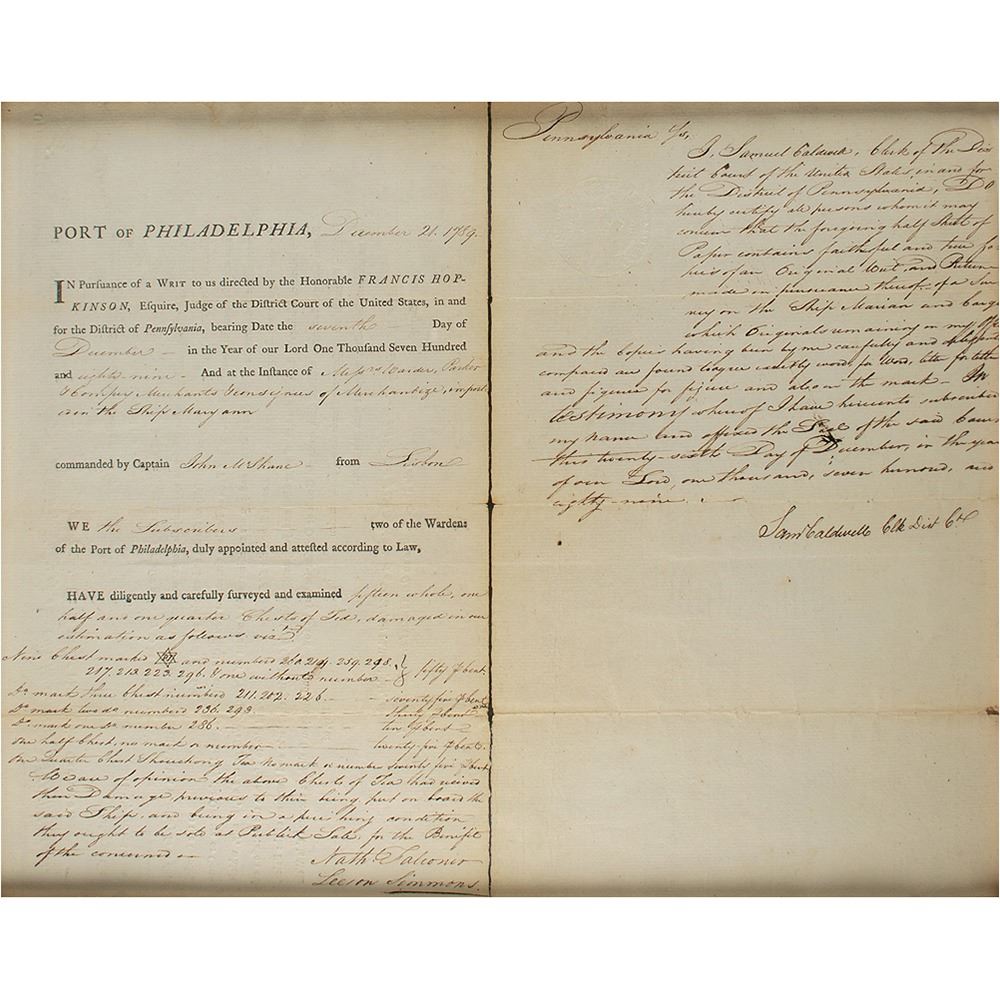 PORT OF PHILADELPHIA, December 21. 1789.
IN Pursuance of a WRIT to us directed by the Honorable FRANCIS HOP-
KINSON, Esquire, Judge of the District Court of the United States, in and
for the District of Pennsylvania, bearing Date the seventh Day of
December in the Year of our Lord One Thousand Seven Hundred
and eighty-nine - And at the Instance of Messrs Warder, Parker
Merchants Consignees of Merchandize,
in the Ship Maryann
commanded by Captain John McShane from Lisbon
WE the Subscribers two of the Wardens
of the Port of Philadelphia, duly appointed and attested according to Law,
HAVE diligently and carefully surveyed and examined fifteen whole, one
half and one quarter Chests of Tea, damaged in our
estimation as follows viz.
Nine Chest marked and numberd 260. 219. 259. 248.
217. 213. 223. 296. & one without number fifty P Cent.
Do mark three Chest numberd 211. 202. 226 seventy five P Cent
Do mark two do numberd 236. 293. P Cent
Do mark one Do number 286. ten P Cent
one half Chest, no mark or number twenty-five P Cent.
one Quarter Chest Shouchong Tea no mark or number seventy five P Cent
We are of opinion the above Chests of Tea had received
their Damage previous to their being put on board the
said Ship, and being in a perishing condition
they ought to be sold at Publick Sale, for the Benefit
of the concerned
Nath Falconer
Leeson Simmons.
Pennsylvania Ss,
I, Samuel Caldwell, Clerk of the Dis
trict Court of the United States, in and for
the District of Pennsylvania, Do
hereby certify all persons whom it may
concern that the foregoing half Sheet of
Paper contains faithful and true Co-
pies of an Original Writ and Return
made in pursuance thereof of a Sur
vey on the Ship Marian and Cargo
which Originals remaining in my Office
and the Copies having been by me carefully and
compared are found to agree exactly word, for Word, letter for letter
and figure for figure and also in the mark - In
testimony whereof I have hereunto subscribed
my name and affixed the Seal of the said Court
this twenty-sixth Day of December, in the year
of our Lord, one thousand, seven hundred, and
eighty-nine.
Saml Caldwell Clk Dist Ct